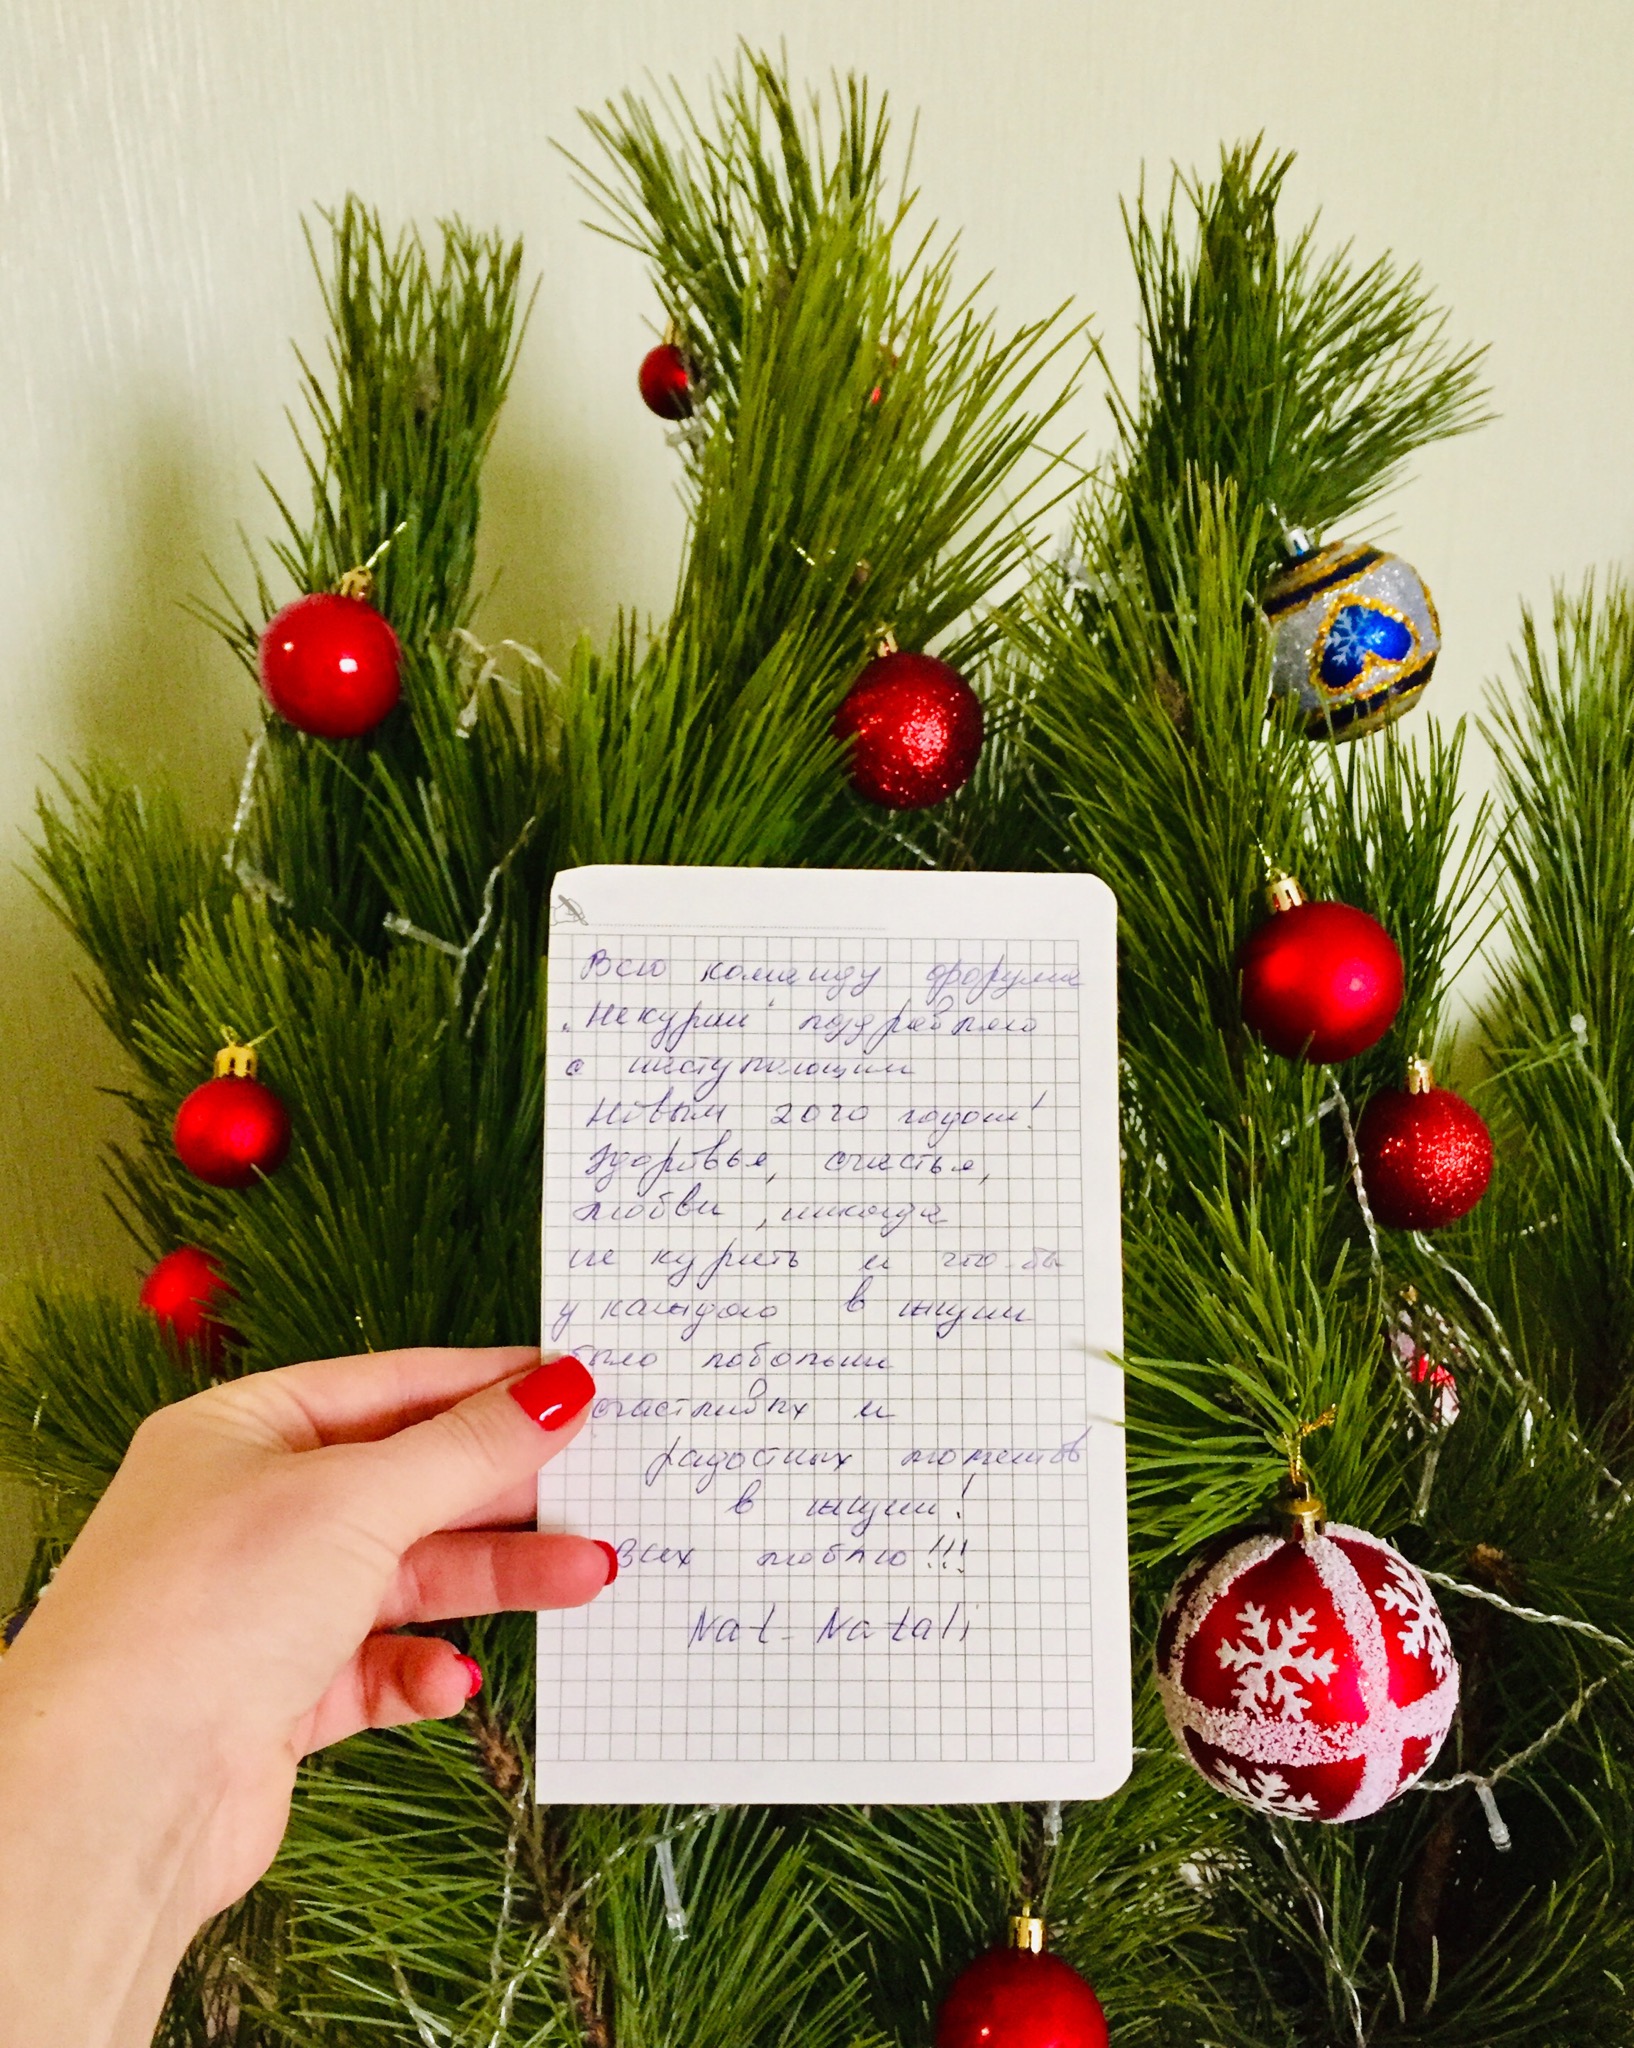 Всю команду форума
„Некурим" поздравляю
с наступающим
Новым 2020 годом!
Здоровья, счастья,
любви, никогда
не курить и что-бы
у каждого в жизни
было побольше
счастливых и
радостных моментов
в жизни!
Всех люблю!!!
Nat-Natali